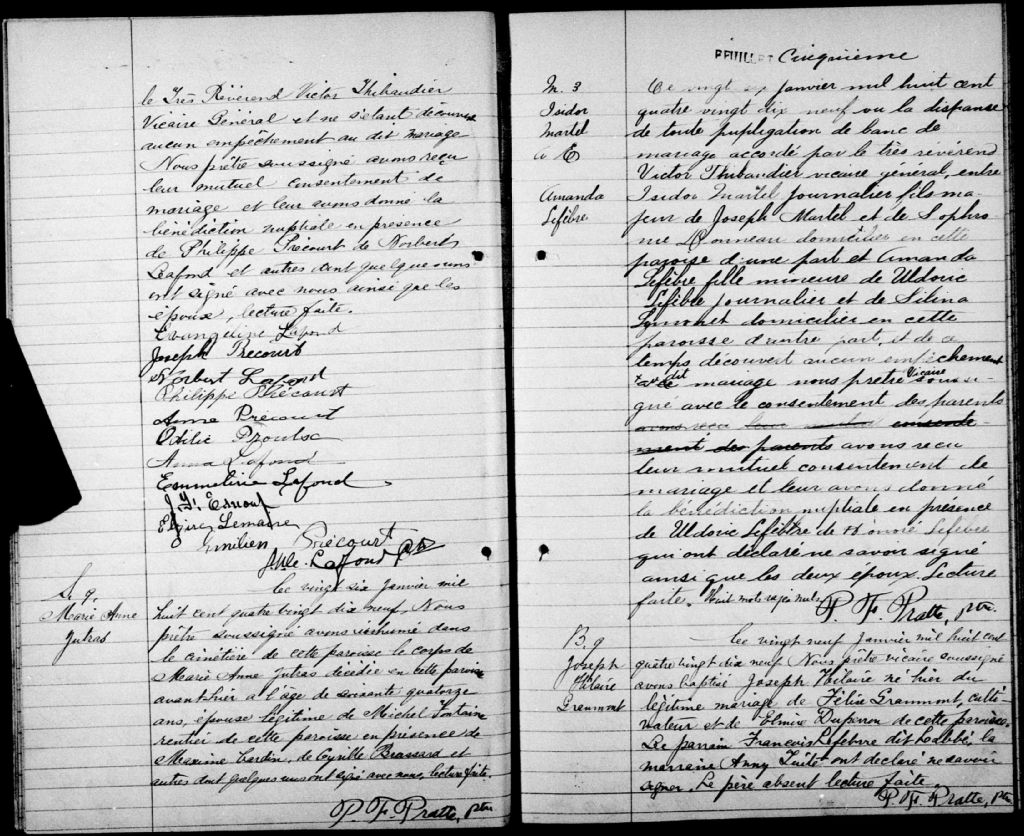 le Très Révérend Victor Thibaudier
Vicaire Général et ne s'étant découvert
aucun empêchement au dit mariage
Nous prêtre soussigné avons reçu
leur mutuel consentement de
mariage et leur avons donné la
bénédiction nuptiale en présence
de Philippe Précourt de Norbert
Lafond et autres dont quelques uns
ont signé avec nous ainsi que les
époux, lecture faite.
Evangeline Lafond
Joseph Precourt
Norbert Lafond
Philippe Précourt
Anna Précourt
Odilie Proulx
Anna Lafond
Emmelina Lafond
Lemaire
Emilien Précourt
Lafond
S. 9.
Marie Anne
Jutras
Le vingt six Janvier mil
huit cent quatre vingt dix neuf, Nous
prêtre soussigné avons inhumé dans
le cimétière de cette paroisse le corps de
Marie Anne Jutras décédée en cette paroisse
avant hier a l'âge de soixante quatorze
ans, épouse légitime de Michel Fontaine
rentier de cette paroisse en présence de
Maxime Hardin, de Cyrille Brassard et
autres dont quelques uns ont signé avec nous lecture faite.
P. F. Pratte, ptre
FEUILLET Cinquième
M. 3
Isidor
Martel
&
Amanda
Lefèbre
Ce vingt six janvier mil huit cent
quatre vingt dix neuf vu la dispanse
de toute pupligation de banc de
mariage accordé par le très révérend
Victor Thibaudier vicaire général, entre
Isidor Martel Journalier fils ma-
jeur de Joseph Martel et de Sophro-
nie Bonneau domicilier en cette
paroise d'une part et Amanda
Lefèbre fille mineure de Uldoric
Lefèbre journalier et de Silina
domicilier en cette
paroisse d'autre part, et de
temps découvert aucun empêchement
au dit mariage nous prêtre Vicaire soussi-
gné avec le consentement des parents
avons reçu leur mutuel consente-
ment des parents avons recu
leur mutuel consentement de
mariage et leur avons donné
la bénédiction nuptiale en présence
de Uldoric Lefèbre de Honoré Lefebre
qui ont déclaré ne savoir signé
ainsi que les deux époux. Lecture
faite. Huit mots rayés nuls.
P. F. Pratte, ptre.
B. 9
Joseph
Hilaire
Grammont
Le vingt neuf Janvier mil huit cent
quatre vingt dix neuf Nous prêtre vicaire soussigné
avons baptisé Joseph Hilaire né hier du
légitime mariage de Félix Grammont, culti-
vateur et de Elmire Duperron de cette paroisse.
Le parrain François Lefebvre dit Labbé, la
marraine Anny ont déclaré ne savoir
signer. Le père absent lecture faite
P. F. Pratte, ptre